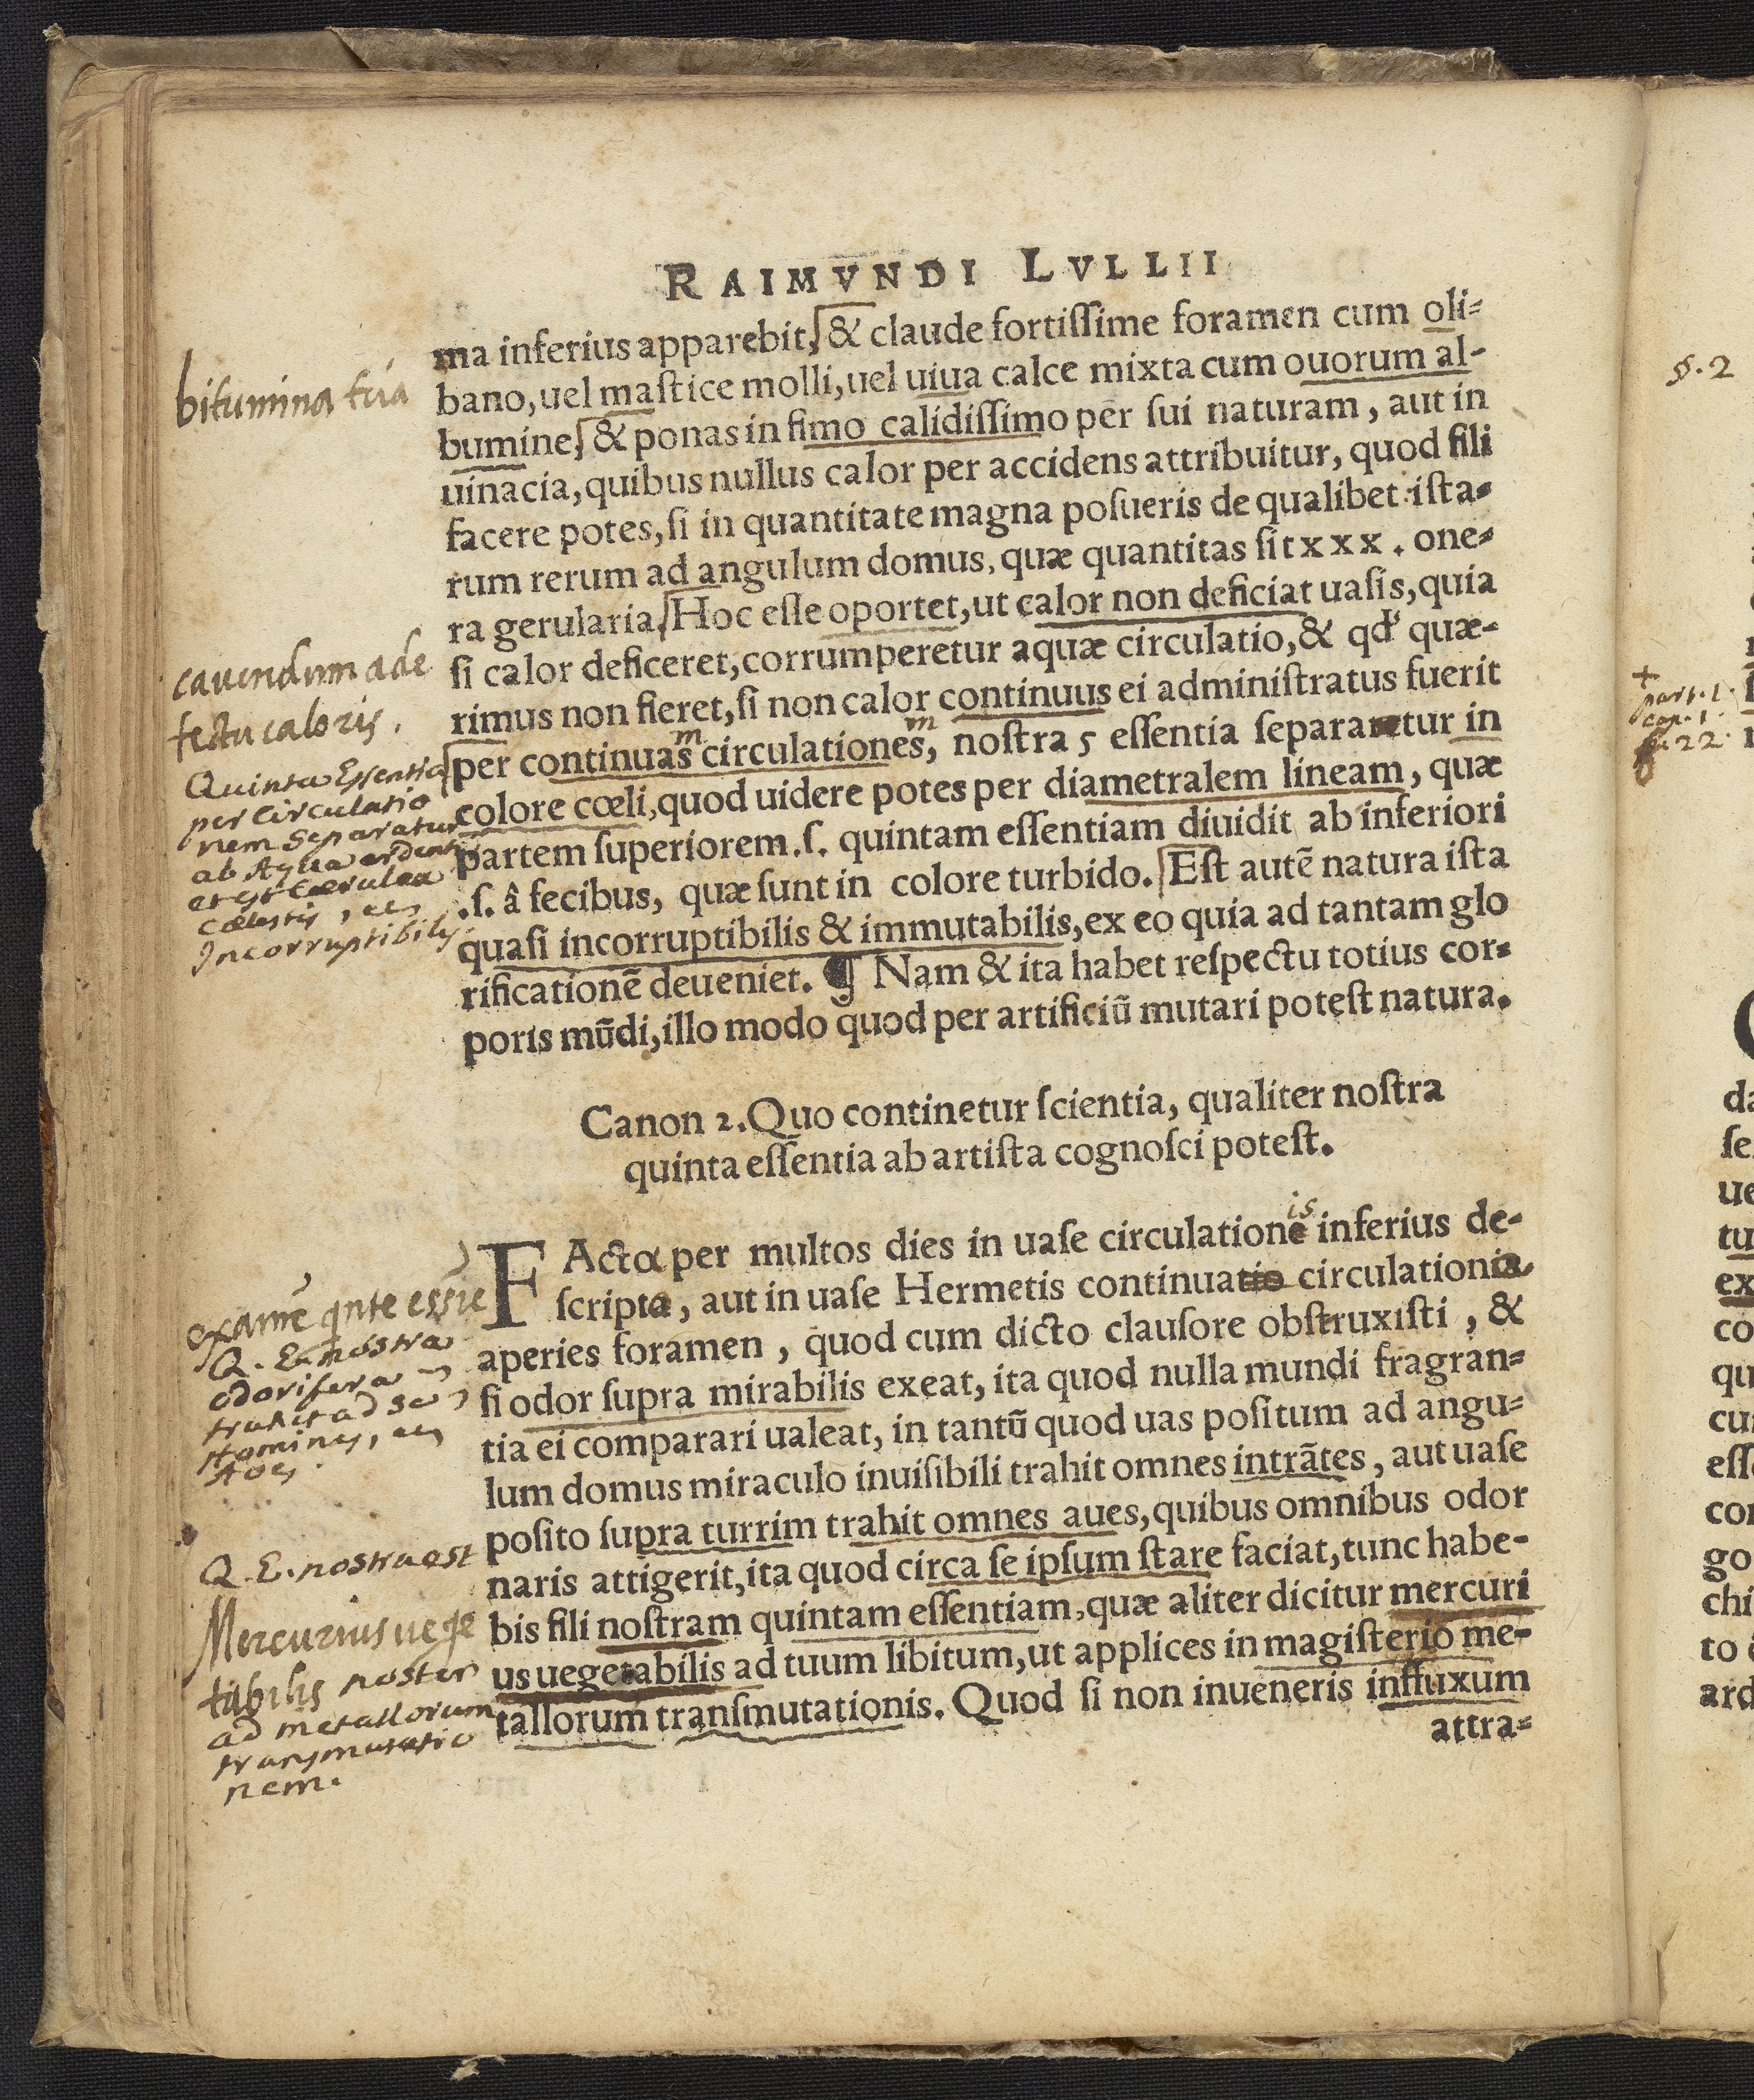 RAIMVNDI LVLLII
ma inferius apparebit, & claude fortiſſime foramen cum oli-
bano, uel maſtice molli, uel uiua calce mixta cum ouorum al-
bumine, & ponas in fimo calidiſſimo per ſui naturam, aut in
uinacia, quibus nullus calor per accidens attribuitur, quod fili
facere potes, ſi in quantitate magna poſueris de qualibet iſta-
rum rerum ad angulum domus, quæ quantitas ſit xxx. one-
ra gerularia. Hoc eſſe oportet, ut calor non deficiat uaſis, quia
ſi calor deficeret, corrumperetur aquæ circulatio, & qd' quæ-
rimus non fieret, ſi non calor continuus ei adminiſtratus fuerit
m m
per continuas circulationes, noſtra 5 eſſentia separaretur in
colore cœli, quod uidere potes per diametralem lineam, quæ
partem ſuperiorem .ſ. quintam eſſentiam diuidit ab inferiori
.ſ. â fecibus, quæ ſunt in colore turbido. Eſt autē natura iſta
quaſi incorruptibilis & immutabilis, ex eo quia ad tantam glo
rificationē deueniet. ¶ Nam & ita habet reſpectu totius cor-
poris mūdi, illo modo quod per artificiū mutari poteſt natura.
Canon 2. Quo continetur ſcientia, qualiter noſtra
quinta eſſentia ab artiſta cognoſci poteſt.
is
FActa per multos dies in uaſe circulatione inferius de-
ſcripta, aut in uaſe Hermetis continuatio circulationis
aperies foramen, quod cum dicto clauſore obſtruxiſti, &
ſi odor ſupra mirabilis exeat, ita quod nulla mundi fragran-
tia ei comparari ualeat, in tantū quod uas poſitum ad angu-
lum domus miraculo inuiſibili trahit omnes intrātes, aut uaſe
poſito ſupra turrim trahit omnes aues, quibus omnibus odor
naris attigerit, ita quod circa ſe ipſum ſtare faciat, tunc habe-
bis fili noſtram quintam eſſentiam, quæ aliter dicitur mercuri
us uegetabilis ad tuum libitum, ut applices in magiſterio me-
tallorum tranſmutationis. Quod ſi non inueneris influxum
attra-
bitumina tria
cauendum a de
fectu caloris.
Quinta Essentia
per Circulatio
nem Separatur
ab Aqua ardenti
et est Cærulea
cælestis,
Incorruptibilis
exame qnte essie
Q. E. nostra
odorifera
trahit ad se
Homines,
Aues.
Q. E. nostra est
Mercurius uege
tabilis noster
ad metallorum
transmutatio
nem.
§. 2
+
part. 1.
cap. 1.
22.